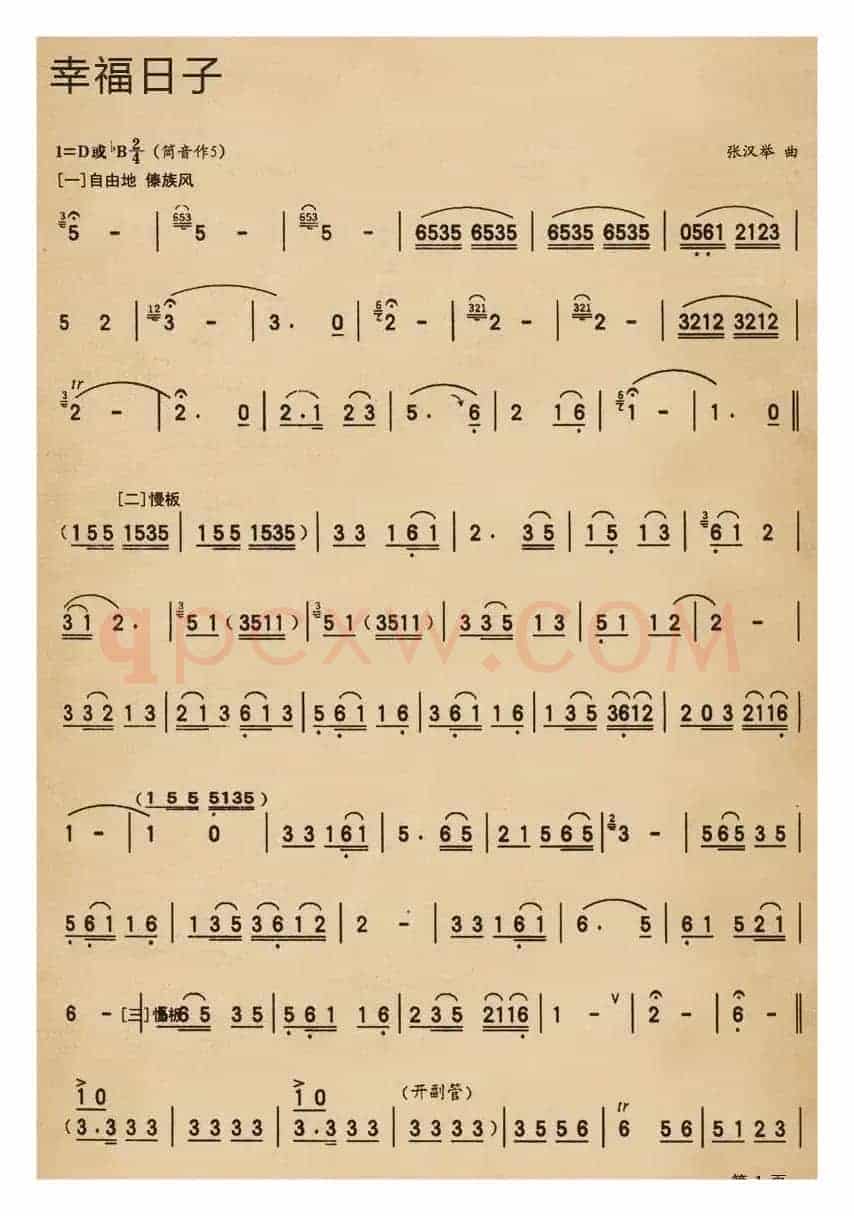 幸福日子
1=D或♭B 2/4 (筒音作5)
张汉举 曲
[一]自由地 傣族风
5 - | 653 5 - | 653 5 - | 6535 6535 | 6535 6535 | 0561 2123 |
5 2 | 12 3 - | 3. 0 | 6 2 - | 321 2 - | 321 2 - | 3212 3212 |
tr
3 2 - | 2. 0 | 2.1 23 | 5. 6 | 2 16 | 6 1 - | 1. 0 ||
[二]慢板
(155 1535 | 155 1535) | 33 161 | 2. 35 | 15 13 | 3 61 2 |
31 2. | 3 51(3511) | 3 51(3511) | 335 13 | 51 12 | 2 - |
33213 | 213613 | 56116 | 36116 | 135 3612 | 203 2116 |
(155 5135)
1 - | 1 0 | 33161 | 5. 65 | 21565 | 2 3 - | 56535 |
56116 | 1353612 | 2 - | 33161 | 6. 5 | 61 521 |
6 - [三]慢板 65 35 | 561 16 | 235 2116 | 1 - V | 2 - | 6 - ||
> 10 > 10 (开副管)
(3.333 | 3333 | 3.333 | 3333) | 3556 | tr 6 56 | 5123 |
qpcxw.COM